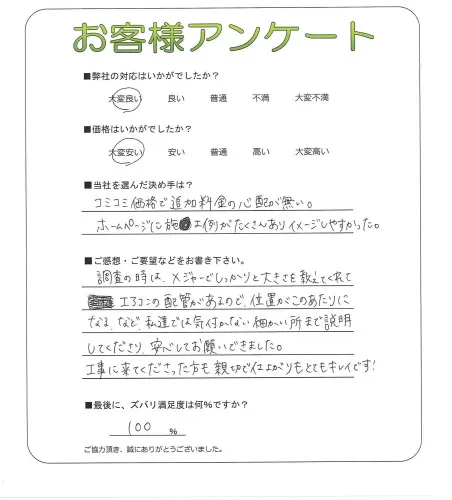 お客様アンケート
■弊社の対応はいかがでしたか?
大変良い 良い 普通 不満 大変不満
■価格はいかがでしたか?
大変安い 安い 普通 高い 大変高い
■当社を選んだ決め手は?
コミコミ価格で追加料金の心配が無い。
ホームページに施工例がたくさんありイメージしやすかった。
■ご感想・ご要望などをお書き下さい。
調査の時は、メジャーでしっかりと大きさを教えてくれて
エコの配管があるので、位置がこのあたりに
なる、など、私達では気付かない細かい所まで説明
してくださり、安心してお願いできました。
工事に来てくださった方も親切で仕上がりもとてもキレイです!
■最後に、ズバリ満足度は何%ですか?
100 %
ご協力頂き、誠にありがとうございました。